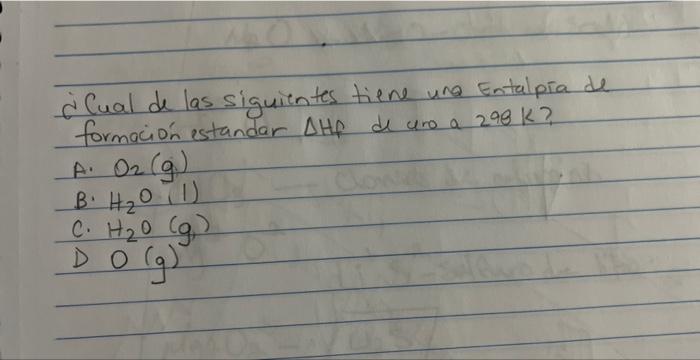 ¿Cual de las siguientes tiene una Entalpía de
formación estandar ΔHf de uro a 298 K?
A. O₂ (g)
B. H₂O (l)
C. H₂O (g)
D O (g)